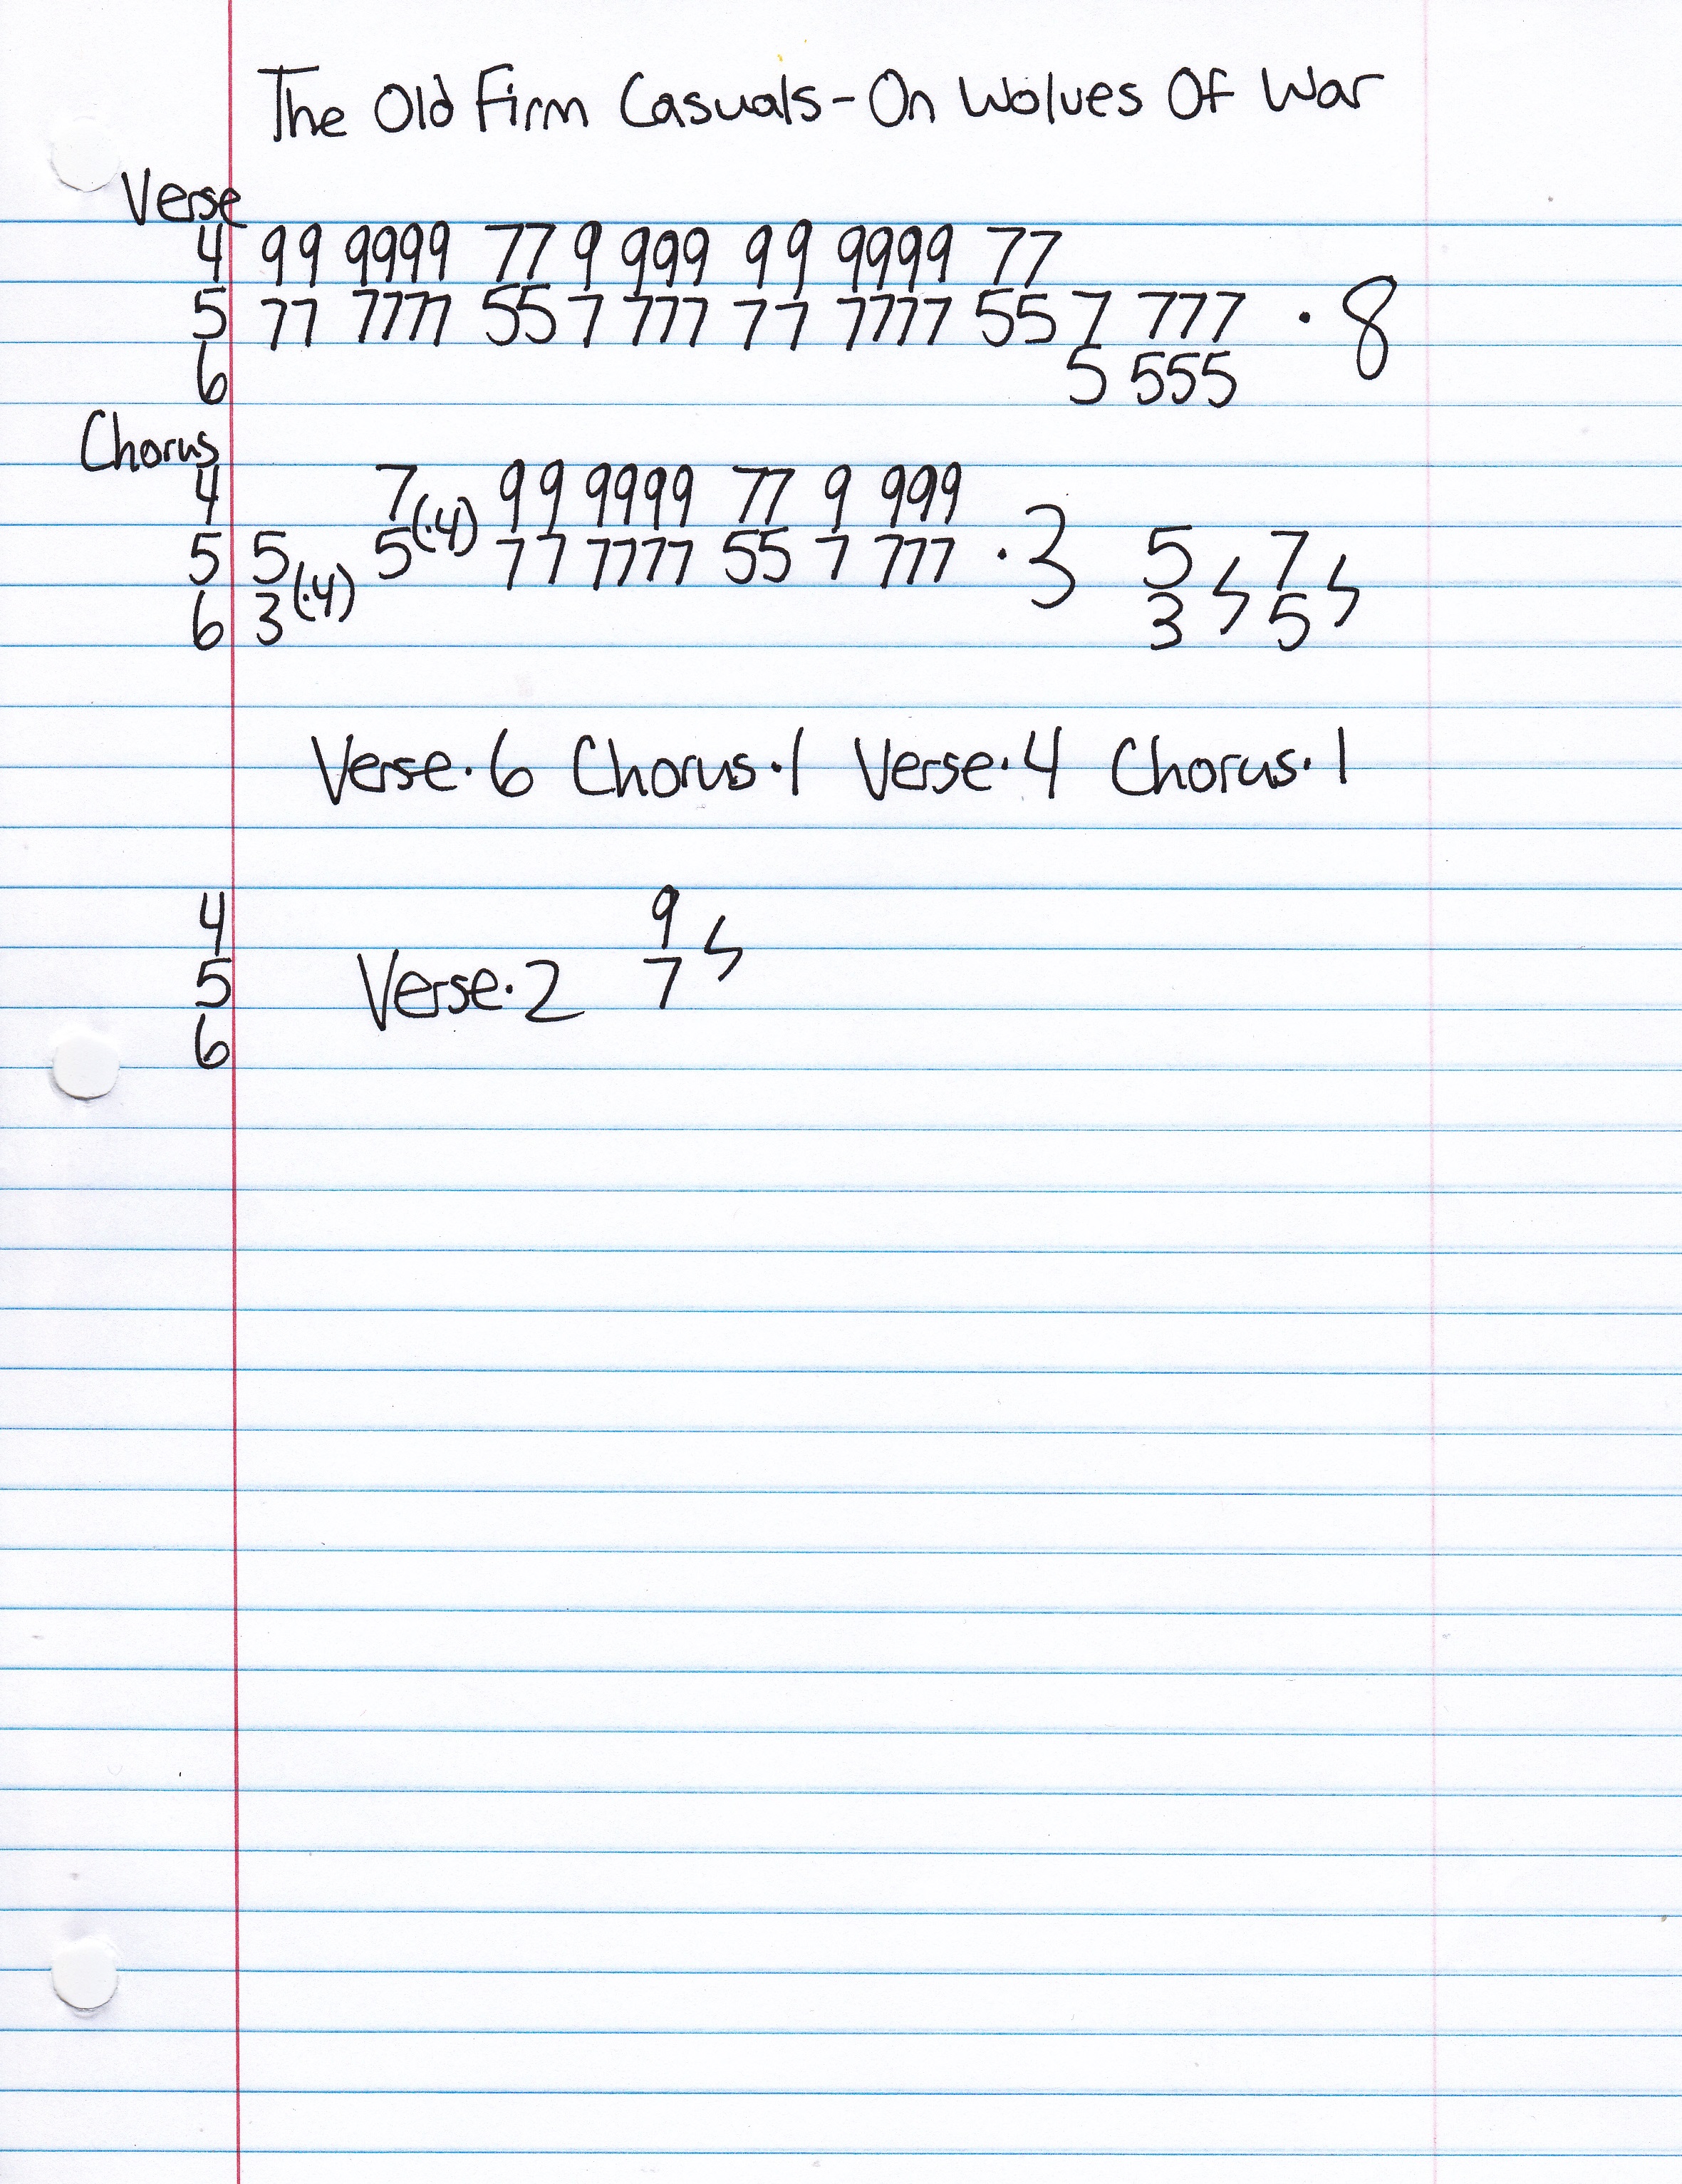 The Old Firm Casuals - On Wolves Of War
Verse
4 99 9999 77 9 999 99 9999 77
5 77 7777 55 7 777 77 7777 55 7 777 · 8
6 5 555
Chorus
4 7 (·4) 99 9999 77 9 999
5 5 (·4) 5 77 7777 55 7 777 · 3 5 ϟ 7 ϟ
6 3 3 5
Verse · 6 Chorus · 1 Verse · 4 Chorus · 1
4 9 ϟ
5 Verse · 2 7
6